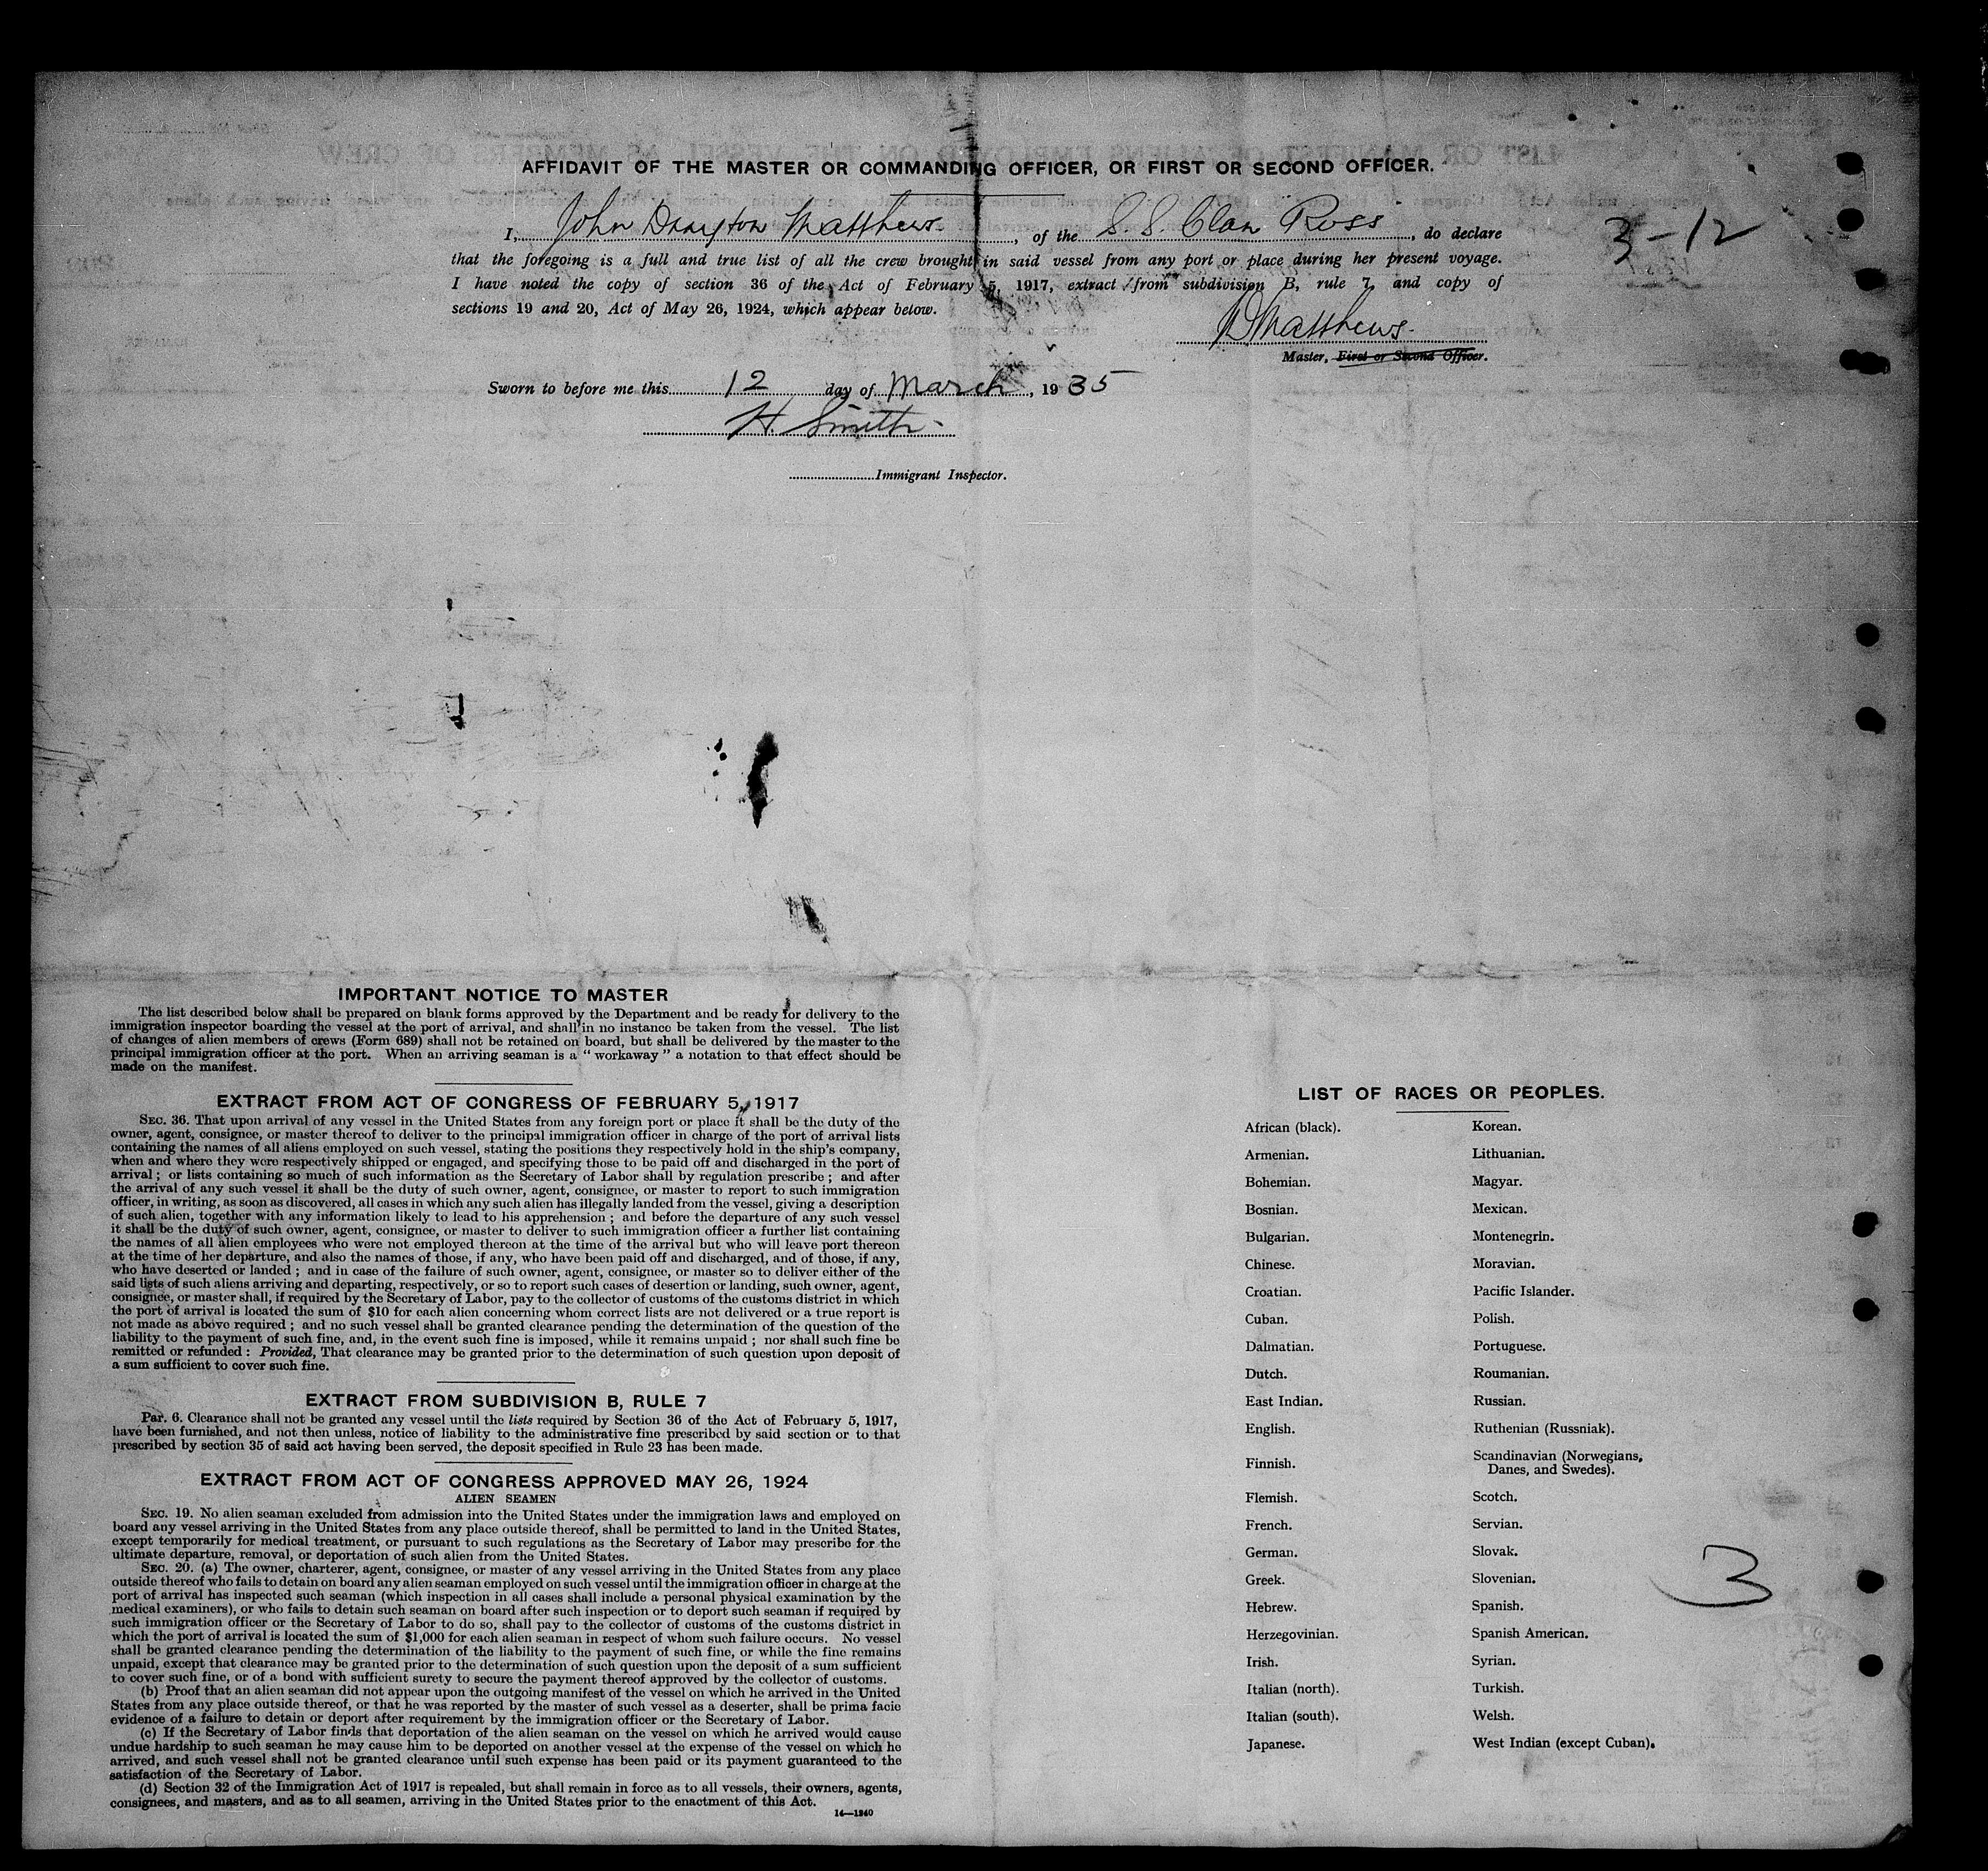 AFFIDAVIT OF THE MASTER OR COMMANDING OFFICER, OR FIRST OR SECOND OFFICER.
I, John Drayton Matthews, of the S. S. Clan Ross, do declare
3-12
that the foregoing is a full and true list of all the crew brought in said vessel from any port or place during her present voyage.
I have noted the copy of section 36 of the Act of February 5, 1917, extract from subdivision B, rule 7, and copy of
sections 19 and 20, Act of May 26, 1924, which appear below.
JDMatthews.
Master, First or Second Officer.
Sworn to before me this 12 day of March, 1935
H. Smith
Immigrant Inspector.
IMPORTANT NOTICE TO MASTER
The list described below shall be prepared on blank forms approved by the Department and be ready for delivery to the
immigration inspector boarding the vessel at the port of arrival, and shall in no instance be taken from the vessel. The list
of changes of alien members of crews (Form 689) shall not be retained on board, but shall be delivered by the master to the
principal immigration officer at the port. When an arriving seaman is a "workaway" a notation to that effect should be
made on the manifest.
EXTRACT FROM ACT OF CONGRESS OF FEBRUARY 5, 1917
SEC. 36. That upon arrival of any vessel in the United States from any foreign port or place it shall be the duty of the
owner, agent, consignee, or master thereof to deliver to the principal immigration officer in charge of the port of arrival lists
containing the names of all aliens employed on such vessel, stating the positions they respectively hold in the ship's company,
when and where they were respectively shipped or engaged, and specifying those to be paid off and discharged in the port of
arrival; or lists containing so much of such information as the Secretary of Labor shall by regulation prescribe; and after
the arrival of any such vessel it shall be the duty of such owner, agent, consignee, or master to report to such immigration
officer, in writing, as soon as discovered, all cases in which any such alien has illegally landed from the vessel, giving a description
of such alien, together with any information likely to lead to his apprehension; and before the departure of any such vessel
it shall be the duty of such owner, agent, consignee, or master to deliver to such immigration officer a further list containing
the names of all alien employees who were not employed thereon at the time of the arrival but who will leave port thereon
at the time of her departure, and also the names of those, if any, who have been paid off and discharged, and of those, if any,
who have deserted or landed; and in case of the failure of such owner, agent, consignee, or master so to deliver either of the
said lists of such aliens arriving and departing, respectively, or so to report such cases of desertion or landing, such owner, agent,
consignee, or master shall, if required by the Secretary of Labor, pay to the collector of customs of the customs district in which
the port of arrival is located the sum of $10 for each alien concerning whom correct lists are not delivered or a true report is
not made as above required; and no such vessel shall be granted clearance pending the determination of the question of the
liability to the payment of such fine, and, in the event such fine is imposed, while it remains unpaid; nor shall such fine be
remitted or refunded: Provided, That clearance may be granted prior to the determination of such question upon deposit of
a sum sufficient to cover such fine.
EXTRACT FROM SUBDIVISION B, RULE 7
Par. 6. Clearance shall not be granted any vessel until the lists required by Section 36 of the Act of February 5, 1917,
have been furnished, and not then unless, notice of liability to the administrative fine prescribed by said section or to that
prescribed by section 35 of said act having been served, the deposit specified in Rule 23 has been made.
EXTRACT FROM ACT OF CONGRESS APPROVED MAY 26, 1924
ALIEN SEAMEN
SEC. 19. No alien seaman excluded from admission into the United States under the immigration laws and employed on
board any vessel arriving in the United States from any place outside thereof, shall be permitted to land in the United States,
except temporarily for medical treatment, or pursuant to such regulations as the Secretary of Labor may prescribe for the
ultimate departure, removal, or deportation of such alien from the United States.
SEC. 20. (a) The owner, charterer, agent, consignee, or master of any vessel arriving in the United States from any place
outside thereof who fails to detain on board any alien seaman employed on such vessel until the immigration officer in charge at the
port of arrival has inspected such seaman (which inspection in all cases shall include a personal physical examination by the
medical examiners), or who fails to detain such seaman on board after such inspection or to deport such seaman if required by
such immigration officer or the Secretary of Labor to do so, shall pay to the collector of customs of the customs district in
which the port of arrival is located the sum of $1,000 for each alien seaman in respect of whom such failure occurs. No vessel
shall be granted clearance pending the determination of the liability to the payment of such fine, or while the fine remains
unpaid, except that clearance may be granted prior to the determination of such question upon the deposit of a sum sufficient
to cover such fine, or of a bond with sufficient surety to secure the payment thereof approved by the collector of customs.
(b) Proof that an alien seaman did not appear upon the outgoing manifest of the vessel on which he arrived in the United
States from any place outside thereof, or that he was reported by the master of such vessel as a deserter, shall be prima facie
evidence of a failure to detain or deport after requirement by the immigration officer or the Secretary of Labor.
(c) If the Secretary of Labor finds that deportation of the alien seaman on the vessel on which he arrived would cause
undue hardship to such seaman he may cause him to be deported on another vessel at the expense of the vessel on which he
arrived, and such vessel shall not be granted clearance until such expense has been paid or its payment guaranteed to the
satisfaction of the Secretary of Labor.
(d) Section 32 of the Immigration Act of 1917 is repealed, but shall remain in force as to all vessels, their owners, agents,
consignees, and masters, and as to all seamen, arriving in the United States prior to the enactment of this Act.
14—1240
LIST OF RACES OR PEOPLES.
African (black).
Armenian.
Bohemian.
Bosnian.
Bulgarian.
Chinese.
Croatian.
Cuban.
Dalmatian.
Dutch.
East Indian.
English.
Finnish.
Flemish.
French.
German.
Greek.
Hebrew.
Herzegovinian.
Irish.
Italian (north).
Italian (south).
Japanese.
Korean.
Lithuanian.
Magyar.
Mexican.
Montenegrin.
Moravian.
Pacific Islander.
Polish.
Portuguese.
Roumanian.
Russian.
Ruthenian (Russniak).
Scandinavian (Norwegians,
Danes, and Swedes).
Scotch.
Servian.
Slovak.
Slovenian.
Spanish.
Spanish American.
Syrian.
Turkish.
Welsh.
West Indian (except Cuban).
3